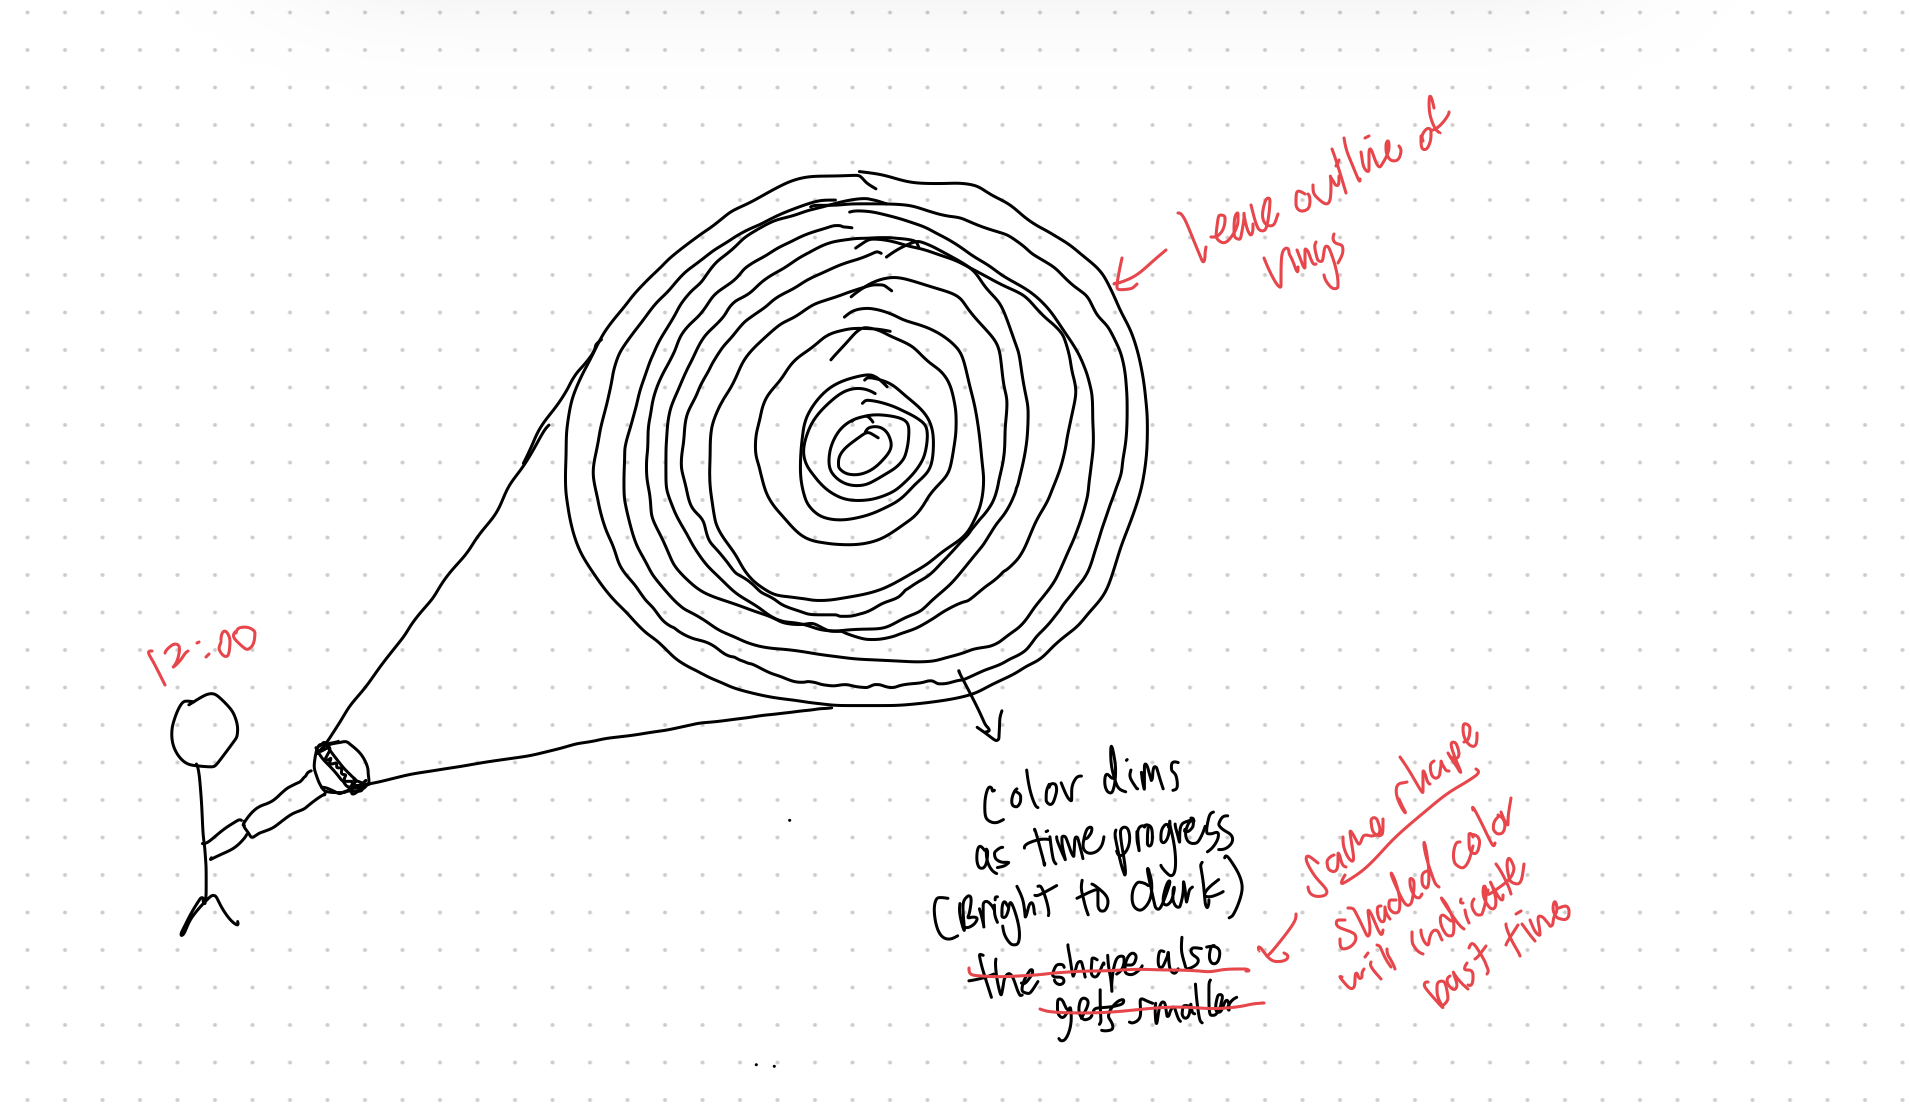 Leave outline of
rings
12:00
Color dims
as time progress
(Bright to dark)
the shape also
gets smaller
Same shape
shaded color
will indicate
past time